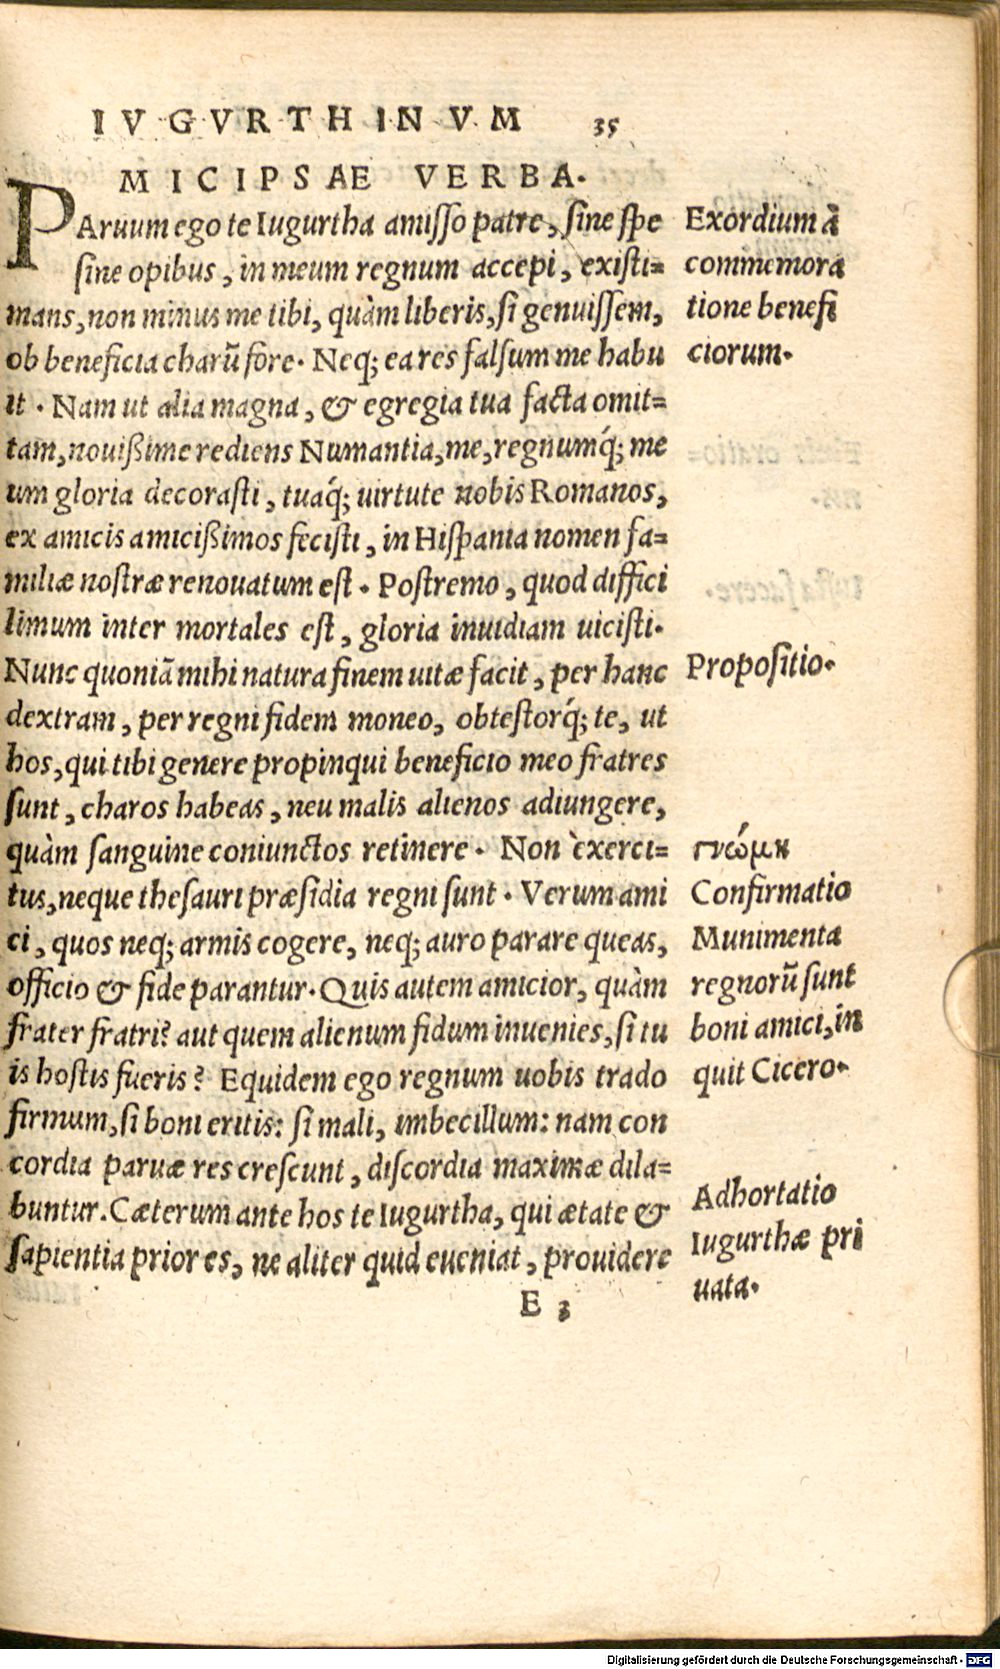 IVGVRTHINVM 35
MICIPSAE VERBA.
PAruum ego te Iugurtha amisso patre, sine spe
sine opibus, in meum regnum accepi, existi=
mans, non minus me tibi, quàm liberis, si genuissem,
ob beneficia charũ fore. Neq; ea res falsum me habu
it. Nam ut alia magna, & egregia tua facta omit=
tam, nouißime rediens Numantia, me, regnumq́; me
um gloria decorasti, tuaq́; uirtute nobis Romanos,
ex amicis amicißimos fecisti, in Hispania nomen fa=
miliæ nostræ renouatum est. Postremo, quod diffici
limum inter mortales est, gloria inuidiam uicisti.
Nunc quoniã mihi natura finem uitæ facit, per hanc
dextram, per regni fidem moneo, obtestorq́; te, ut
hos, qui tibi genere propinqui beneficio meo fratres
sunt, charos habeas, neu malis alienos adiungere,
quàm sanguine coniunctos retinere. Non exerci=
tus, neque thesauri præsidia regni sunt. Verum ami
ci, quos neq; armis cogere, neq; auro parare queas,
officio & fide parantur. Quis autem amicior, quàm
frater fratri? aut quem alienum fidum inuenies, si tu
is hostis fueris? Equidem ego regnum uobis trado
firmum, si boni eritis: si mali, imbecillum: nam con
cordia paruæ res crescunt, discordia maximæ dila=
buntur. Cæterum ante hos te Iugurtha, qui ætate &
sapientia prior es, ne aliter quid eueniat, prouidere
E 3
Exordium à
commemora
tione benefi
ciorum.
Propositio.
γνώμη
Confirmatio
Munimenta
regnorũ sunt
boni amici, in
quit Cicero.
Adhortatio
Iugurthæ pri
uata.
Digitalisierung gefördert durch die Deutsche Forschungsgemeinschaft - DFG